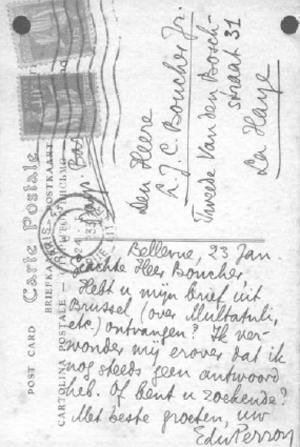 Den Heere
L.J.C. Boucher Jr.
Tweede Van den Bosch-
straat 31
La Haye
Carte Postale
POST CARD
BRIEFKAART
CARTOLINA POSTALE
Bellevue, 23 Jan
geachte Heer Boucher,
Hebt u mijn brief uit
Brussel (over Multatuli,
etc.) ontvangen? Ik ver-
wonder mij erover dat ik
nog steeds geen antwoord
heb. Of bent u zoekende?
Met beste groeten, uw
EduPerron